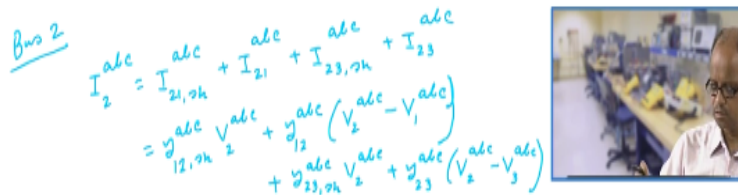 Bus 2
I_2^{abc} = I_{21,sh}^{abc} + I_{21}^{abc} + I_{23,sh}^{abc} + I_{23}^{abc}
= y_{12,sh}^{abc} V_2^{abc} + y_{12}^{abc} (V_2^{abc} - V_1^{abc})
+ y_{23,sh}^{abc} V_2^{abc} + y_{23}^{abc} (V_2^{abc} - V_3^{abc})